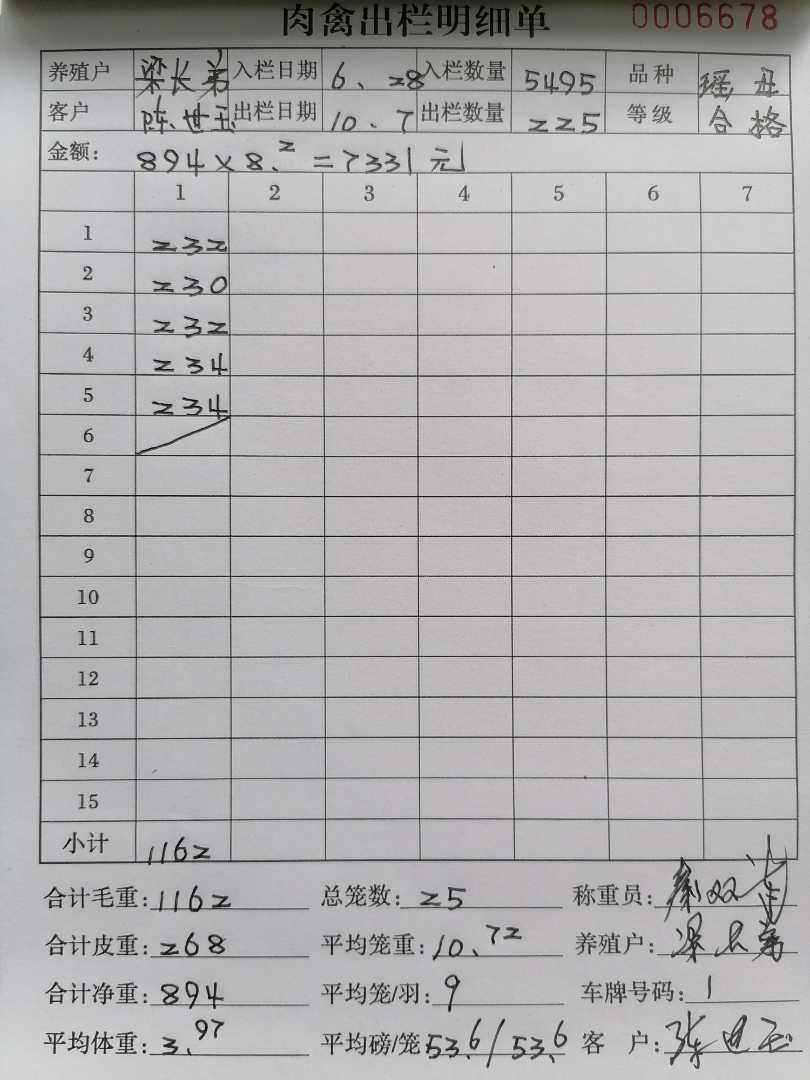 肉禽出栏明细单 0006678
养殖户 梁长弟 入栏日期 6、28 入栏数量 5495 品种 瑶母
客户 陈世玉 出栏日期 10.7 出栏数量 225 等级 合格
金额: 894×8.2=7331元
1 2 3 4 5 6 7
1 232
2 230
3 232
4 234
5 234
6
7
8
9
10
11
12
13
14
15
小计 1162
合计毛重: 1162 总笼数: 25 称重员:
合计皮重: 268 平均笼重: 10.72 养殖户: 梁长弟
合计净重: 894 平均笼/羽: 9 车牌号码: 1
平均体重: 3.97 平均磅/笼: 53.6/53.6 客户: 陈世玉